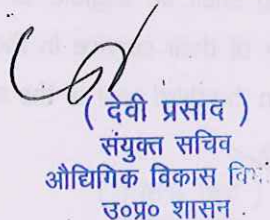 ( देवी प्रसाद )
संयुक्त सचिव
औद्यिगिक विकास
उ०प्र० शासन